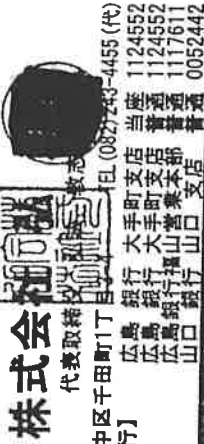 株式会社
代表取締役
中区千田町1丁
TEL (082)243-4455 (代)
行】
広島 銀行 大手町支店 当座 1124552
広島 銀行 大手町支店 普通 1124552
広島銀行福山営業本部 普通 1117611
山口 銀行 山口 支店 普通 0052442